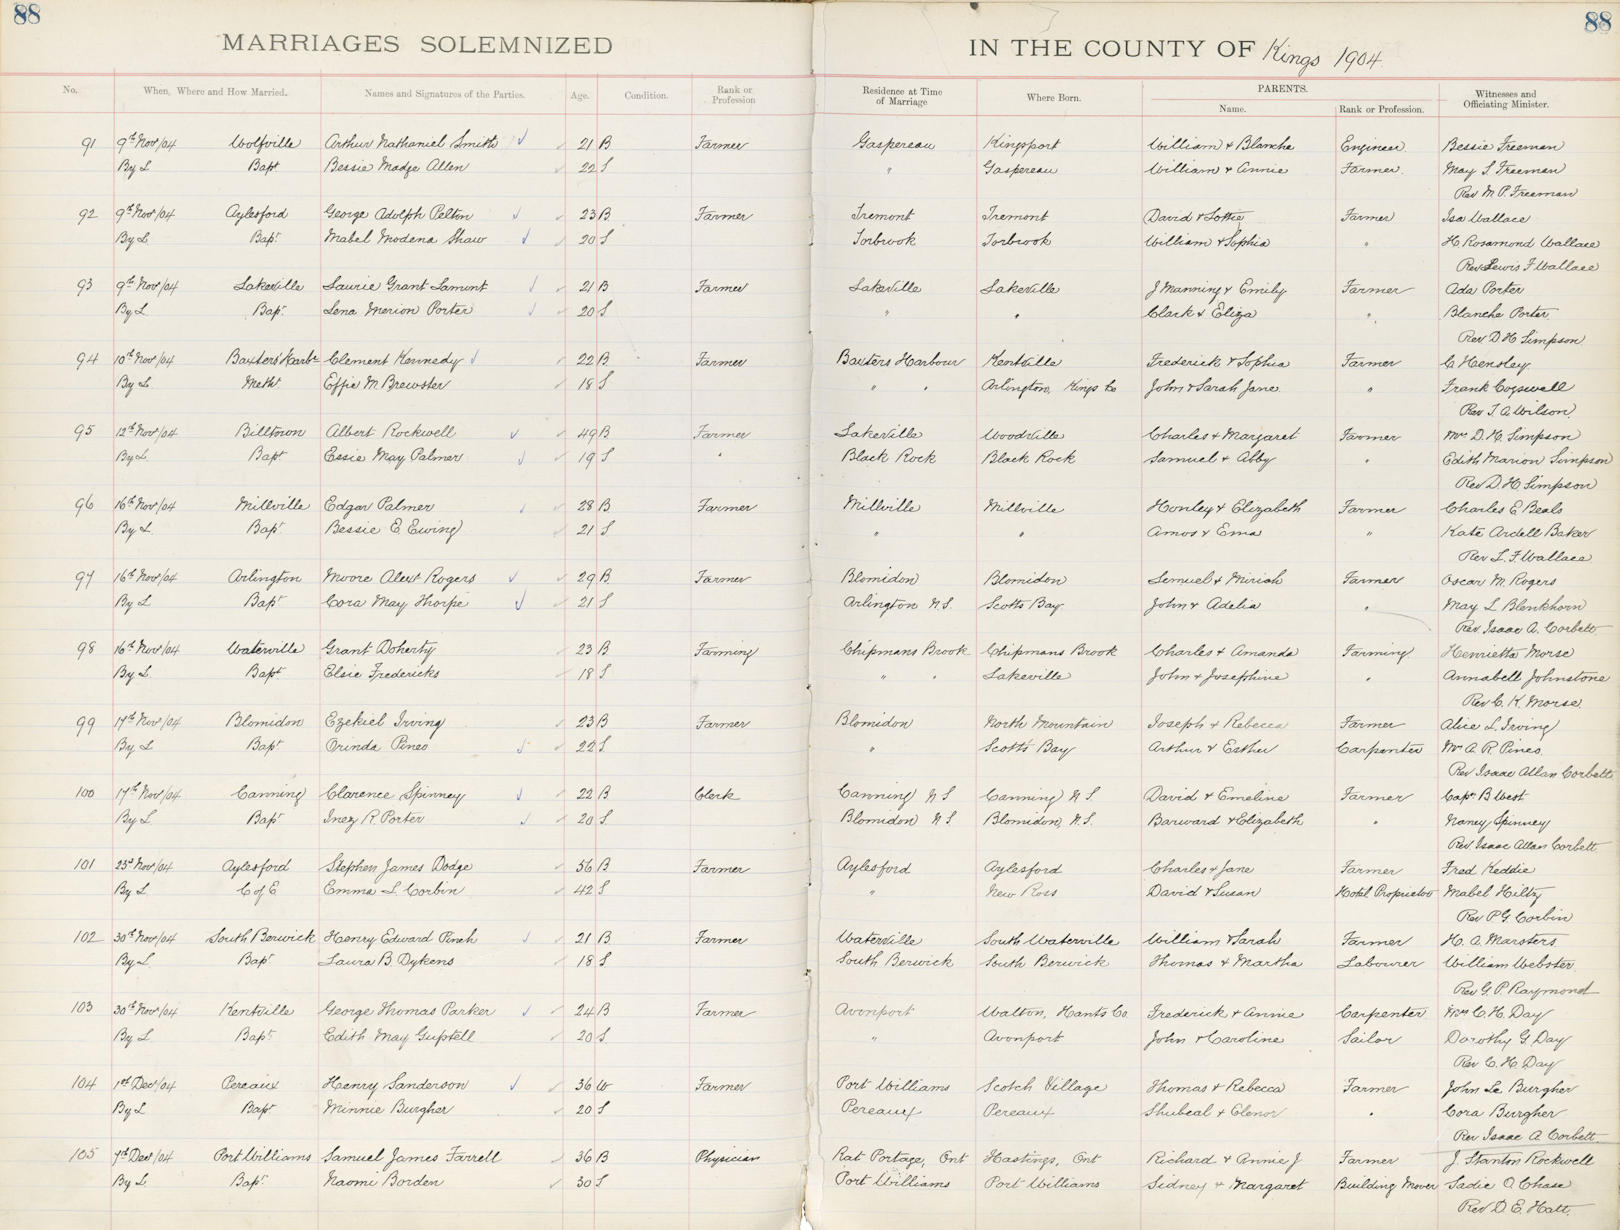 88
88
MARRIAGES SOLEMNIZED IN THE COUNTY OF Kings 1904.
No. When, Where and How Married. Names and Signatures of the Parties. Age. Condition. Rank or Profession Residence at Time of Marriage Where Born. PARENTS. Name. Rank or Profession. Witnesses and Officiating Minister.
91 9th Nov/04 Wolfville Arthur Nathaniel Smith 21 B Farmer Gaspereau Kingsport William & Blanche Engineer Bessie Freeman
By L Bapt Bessie Madge Allen 22 S " Gaspereau William & Annie Farmer. May S. Freeman
Rev M. P. Freeman
92 9th Nov/04 Aylesford George Adolph Pelton 23 B. Farmer Tremont Tremont David & Lottie Farmer Isa Wallace
By L Bapt Mabel Modena Shaw 20 S Torbrook Torbrook William & Sophia " H. Rosamond Wallace
Rev Lewis F Wallace
93 9th Nov/04 Lakeville Laurie Grant Lamont 21 B Farmer Lakeville Lakeville J Manning & Emily Farmer Ada Porter
By L Bapt. Lena Merion Porter 20 S " " Clark & Eliza " Blanche Porter
Rev D H Simpson
94 10th Nov/04 Baxters Harbr Clement Kennedy 22 B. Farmer Baxters Harbour Kentville Frederick & Sophia Farmer C Hensley.
By L Metht Effie M Brewster 18 S " " Arlington, Kings Co John & Sarah Jane " Frank Cogswell
Rev J. A. Wilson.
95 12th Nov/04 Billtown Albert Rockwell 49 B Farmer Lakeville Woodville Charles & Margaret Farmer Mrs D. H. Simpson
By L. Bapt Essie May Palmer 19 S " Black Rock Black Rock Samuel & Abby " Edith Marion Simpson
Rev D. H. Simpson
96 16th Nov/04 Millville Edgar Palmer 28 B Farmer Millville Millville Henley & Elizabeth Farmer Charles E Beals
By L. Bapt Bessie E. Ewing 21 S " " Amos & Ema " Kate Ardell Baker
Rev L. F. Wallace
97 16th Nov/04 Arlington Moore Alext Rogers 29 B. Farmer Blomidon Blomidon Lemuel & Miriah Farmer Oscar M. Rogers
By L Bapt Cora May Thorpe 21 S Arlington N.S. Scotts Bay John & Adelia " May L Blenkhorn
Rev Isaac A. Corbett
98 16th Nov/04 Waterville Grant Doherty 23 B Farming Chipmans Brook Chipmans Brook Charles & Amanda Farming. Henrietta Morse
By L. Bapt Elsie Fredericks 18 S " " Lakeville John & Josephine " Annabell Johnstone
Rev C. K. Morse
99 17th Nov/04 Blomidon Ezekiel Irving 23 B Farmer Blomidon North Mountain Joseph & Rebecca Farmer Alice L. Irving
By L Bapt Orinda Pineo 22 S " Scotts Bay Arthur & Esther Carpenter Mrs A. R. Pineo.
Rev Isaac Allan Corbett
100 17th Nov/04 Canning Clarence Spinney 22 B. Clerk Canning N S Canning N. S. David & Emeline Farmer Capt B West
By L Bapt Inez R. Porter 20 S. Blomidon N S Blomidon, N.S. Barward & Elizabeth " Nancy Spinney
Rev Isaac Allan Corbett
101 23d Nov/04 Aylesford Stephen James Dodge 56 B Farmer Aylesford Aylesford Charles & Jane Farmer Fred Keddie
By L. C of E Emma L. Corbin 42 S " New Ross David & Susan Hotel Proprietor Mabel Hiltz
Rev P G. Corbin
102 30th Nov/04 South Berwick Henry Edward Pinch 21 B. Farmer Waterville South Waterville William & Sarah Farmer H. A. Marsters
By L. Bapt Laura B. Dykens 18 S South Berwick South Berwick Thomas & Martha Labourer William Webster.
Rev G. P. Raymond
103 30th Nov/04 Kentville George Thomas Parker 24 B Farmer Avonport Walton, Hants Co Frederick & Annie Carpenter Mrs C. H. Day
By L Bapt Edith May Guptell 20 S " Avonport John & Caroline Sailor Dorothy G Day
Rev C. H Day
104 1st Dec/04 Pereaux Henry Sanderson 36 W Farmer Port Williams Scotch Village Thomas & Rebecca Farmer John Le Burgher
By L Bapt Minnie Burgher 20 S Pereaux Pereaux Shubeal & Elenor " Cora Burgher
Rev Isaac A Corbett
105 7th Dec/04 Port Williams Samuel James Farrell 36 B Physician Rat Portage, Ont Hastings, Ont Richard & Annie J Farmer J. Stanton Rockwell
By L Bapt. Naomi Borden 30 S Port Williams Port Williams Sidney & Margaret Building Mover Sadie O Chase
Rev D. E. Hatt.